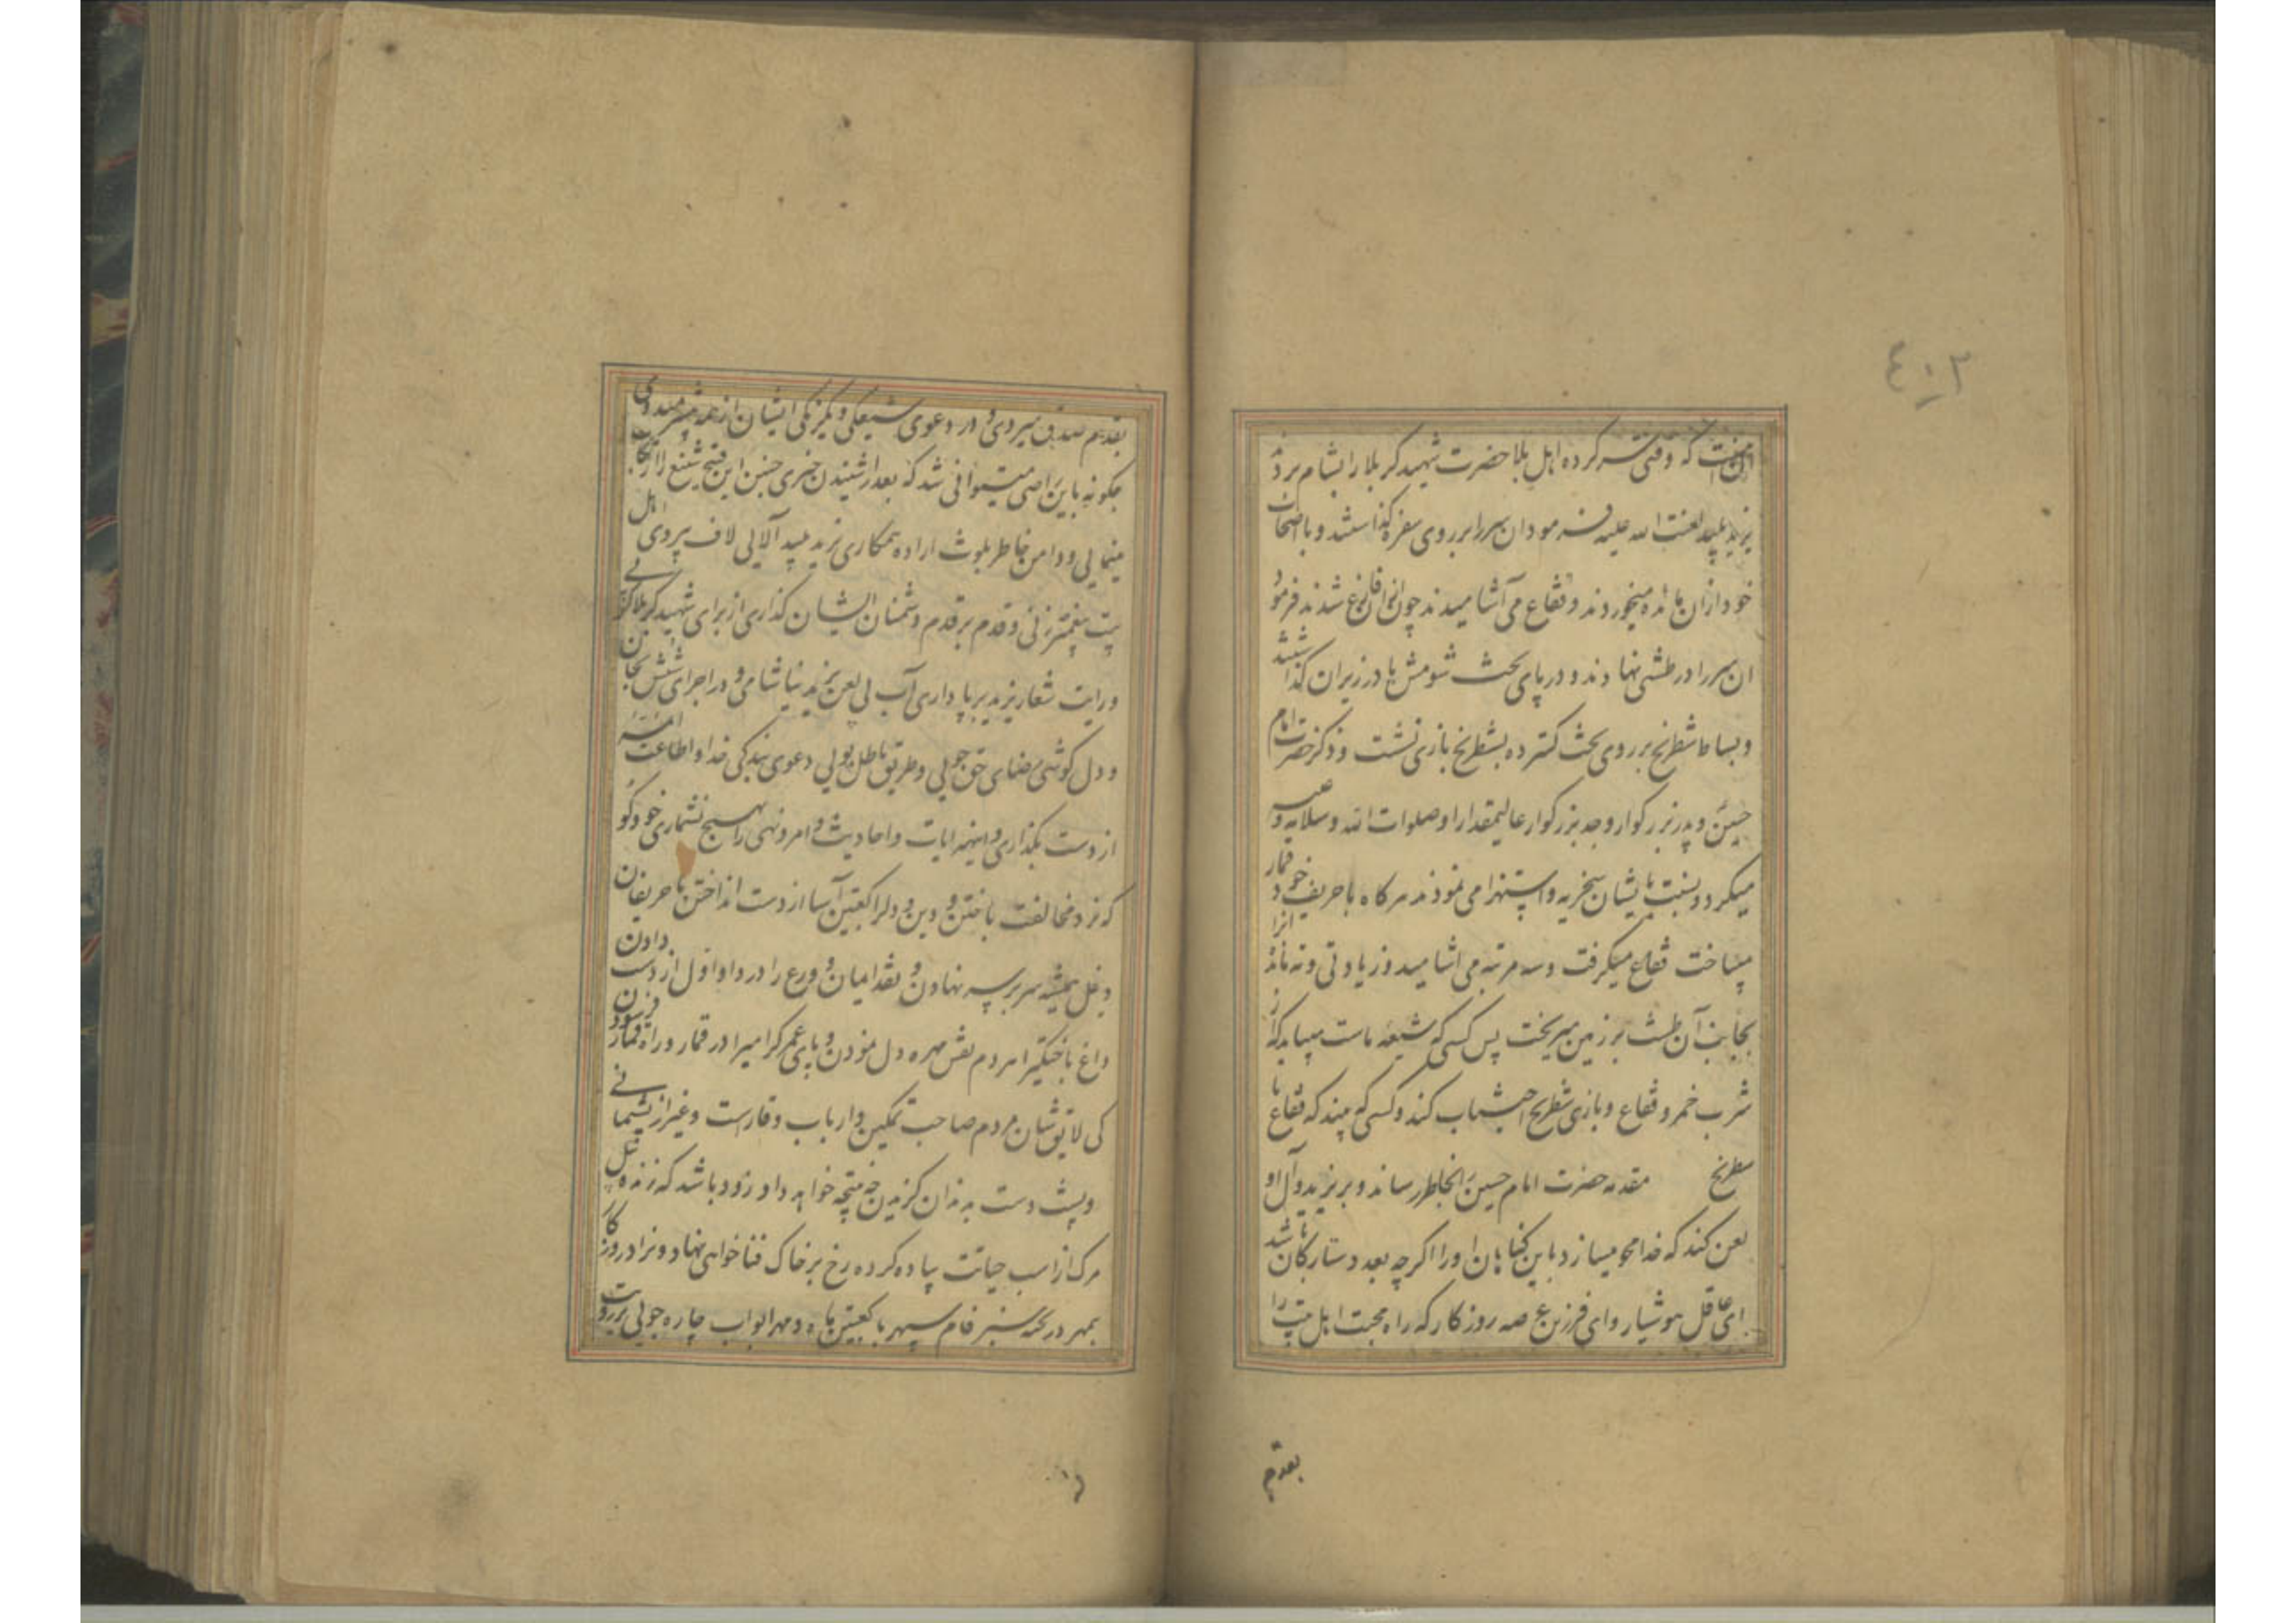 ٤٠٢
که وقتی سر کرده اهل بلا حضرت شهید کربلا را بشام بردند
یزید پلید لعنت الله علیه فرمود ان سر را بر روی سفره گذاشتند و با اصحاب
خود از ان مائده میخوردند و فقاع می آشامیدند چون فارغ شدند فرمود
ان سر را در طشتی نهادند و در پای تخت شومش در زیر ان گذاشتند
و بساط شطرنج بر روی تخت گسترده بشطرنج بازی نشست و ذکر حضرت امام
حسین و پدر بزرگوار و جد بزرگوار عالیمقدار او صلوات الله وسلامه علیه
میکرد و نسبت بایشان سخریه و استهزا می نمود هرگاه با حریف خود قمار
میساخت فقاع میگرفت و سه مرتبه می اشامید و زیادتی و ته مانده انرا
بجانب آن طشت بر زمین میریخت پس کسی که شیعه ماست میباید که از
شرب خمر و فقاع و بازی شطرنج اجتناب کند و کسی که بیند که فقاع یا
شطرنج مقدمه حضرت امام حسین بخاطر رساند و بر یزید و آل او
لعن کند که خدا محو میسازد باین گناهان او را اگر چه بعدد ستارگان باشد
ای عاقل هوشیار و ای فرزین عرصه روزگار که راه محبت اهل بیت را
بقدم
بقدم صدق سپردی و در دعوی شیعگی و یکرنگی ایشان از همه
چگونه باین راضی میتوانی شد که بعد از شنیدن خبری چنین این قبیح شنیع را ارتکاب
مینمایی و دامن خاطر بلوث اراده همکاری یزید پلید آلایی لاف پیروی اهل
بیت پیغمبر زنی و قدم بر قدم دشمنان ایشان گذاری از برای شهید کربلا
و رایت شعار یزید بر پا داری آب بی لعن یزید نیاشامی و در اجرای
و دل کوشی رضای حق جویی و طریق باطل پویی دعوی بندگی خدا و اطاعت
از دست بگذاری و اینهمه ایات و احادیث و امر و نهی را بهیچ نشماری خود گو
که نرد مخالفت باختن و دین و دل را کعبتین آسا از دست انداختن با حریفان
دغل همیشه سر بر سر نهادن و نقد ایمان و ورع را در داو اول از دست دادن
داغ مردم نقش مهره دل نمودن و پای عمر گرامی را در قمار و راه قمار فرسودن
کی لایق شان مردم صاحب تمکین و ارباب وقارست و غیر از پشیمانی
و پشت دست به دندان گزیدن چه نتیجه خواهد داد زود باشد که
مرک از اسب حیاتت پیاده کرده رخ بر خاک فنا خواهی نهاد و نراد روزگار
در تخته سبز فام سپهر با کعبتین ماه و مهر ابواب چاره جویی بر رویت